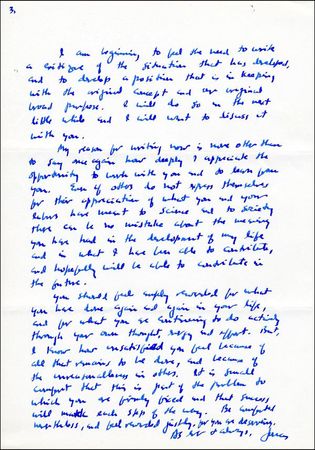 3,
I am beginning to feel the need to write
a critique of the situation that has developed,
and to develop a position that is in keeping
with the original concept and our original
broad purpose. I will do so in the next
little while and I will want to discuss it
with you.
My reason for writing now is none other than
to say once again how deeply I appreciate the
opportunity to work with you and to learn from
you. Even if others do not express themselves
for their appreciation of what you and your
labors have meant to science and to society
there can be no mistake about the meaning
you have had in the development of my life
and in what I have been able to contribute,
and hopefully will be able to contribute in
the future.
You should feel amply rewarded for what
you have done again and again in your life,
and for what you are continuing to do actively
through your own thought, energy and effort. But,
I know how unsatisfied you feel because of
all that remains to be done, and because of
the unreasonableness in others. It is small
comfort that this is part of the problem to
which you are firmly fixed and that success
will mark each step of the way. Be comforted
nonetheless, and feel rewarded justly, for you are deserving.
As ever & always, Jonas